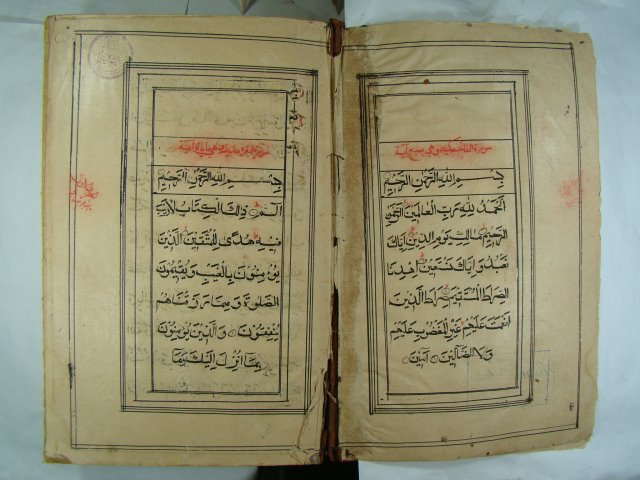 سورة الفاتحة مكية وهي سبع آية
بِسْمِ اللهِ الرَّحْمٰنِ الرَّحِيْمِ
اَلْحَمْدُ لِلّٰهِ رَبِّ الْعَالَمِيْنَ الرَّحْمٰنِ
الرَّحِيْمِ مَالِكِ يَوْمِ الدِّيْنِ اِيَّاكَ
نَعْبُدُ وَاِيَّاكَ نَسْتَعِيْنُ اِهْدِنَا
الصِّرَاطَ الْمُسْتَقِيْمَ صِرَاطَ الَّذِيْنَ
اَنْعَمْتَ عَلَيْهِمْ غَيْرِ الْمَغْضُوْبِ عَلَيْهِمْ
وَلَا الضَّالِّيْنَ اٰمِيْنَ
سورة البقرة مدنية وهي آية
بِسْمِ اللهِ الرَّحْمٰنِ الرَّحِيْمِ
الٓمّٓ ذٰلِكَ الْكِتَابُ لَا رَيْبَ
فِيْهِ هُدًى لِّلْمُتَّقِيْنَ الَّذِيْنَ
يُؤْمِنُوْنَ بِالْغَيْبِ وَيُقِيْمُوْنَ
الصَّلٰوةَ وَمِمَّا رَزَقْنَاهُمْ
يُنْفِقُوْنَ وَالَّذِيْنَ يُؤْمِنُوْنَ
بِمَا اُنْزِلَ اِلَيْكَ وَمَا